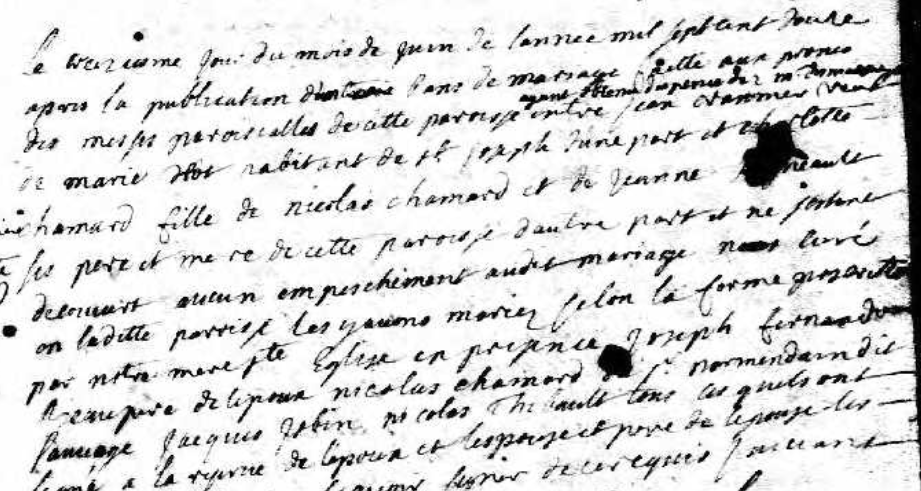 Le treiziesme jour du mois de juin de lannee mil sept cent douze
apres la publication d'un bans de mariage faitte aux prones
ayant obtenu dispence de
des messes paroissialles de cette paroisse entre jean veuf
de marie habitant de st joseph dune part et charlotte
chamard fille de nicolas chamard et de jeanne
ses pere et mere de cette paroisse dautre part et ne sestant
decouvert aucun empeschement audit mariage nous curé
en laditte parroisse les ayons mariez selon la forme prescritte
par nostre mere ste Eglise en presence joseph fernando
Beaupere de lepoux nicolas chamard de st normendain dit
Sauvage jacques jobin nicolas Thibault tous lesquels ont
signé a la reserve de lepoux et lespouse et pere de lepouse les
signer de ce requis suivant